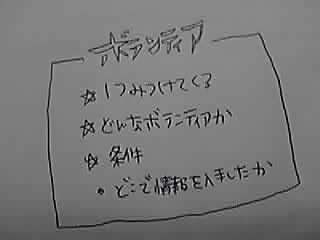 ボランティア
☆ 1つみつけてくる
☆ どんなボランティアか
☆ 条件
• どこで情報を入ましたか